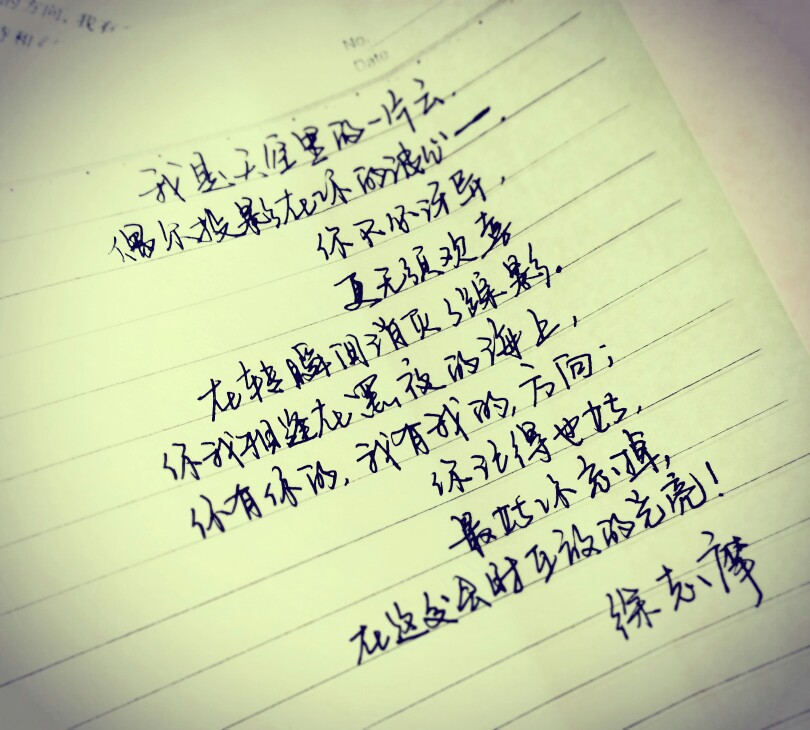 的方向，我有
No.
Date
我是天涯里的一片云.
偶尔投影在你的波心—.
你不必讶异，
更无须欢喜
在转瞬间消灭了踪影.
你我相逢在黑夜的海上，
你有你的，我有我的，方向；
你记得也好，
最好你忘掉，
在这交会时互放的光亮！
徐志摩